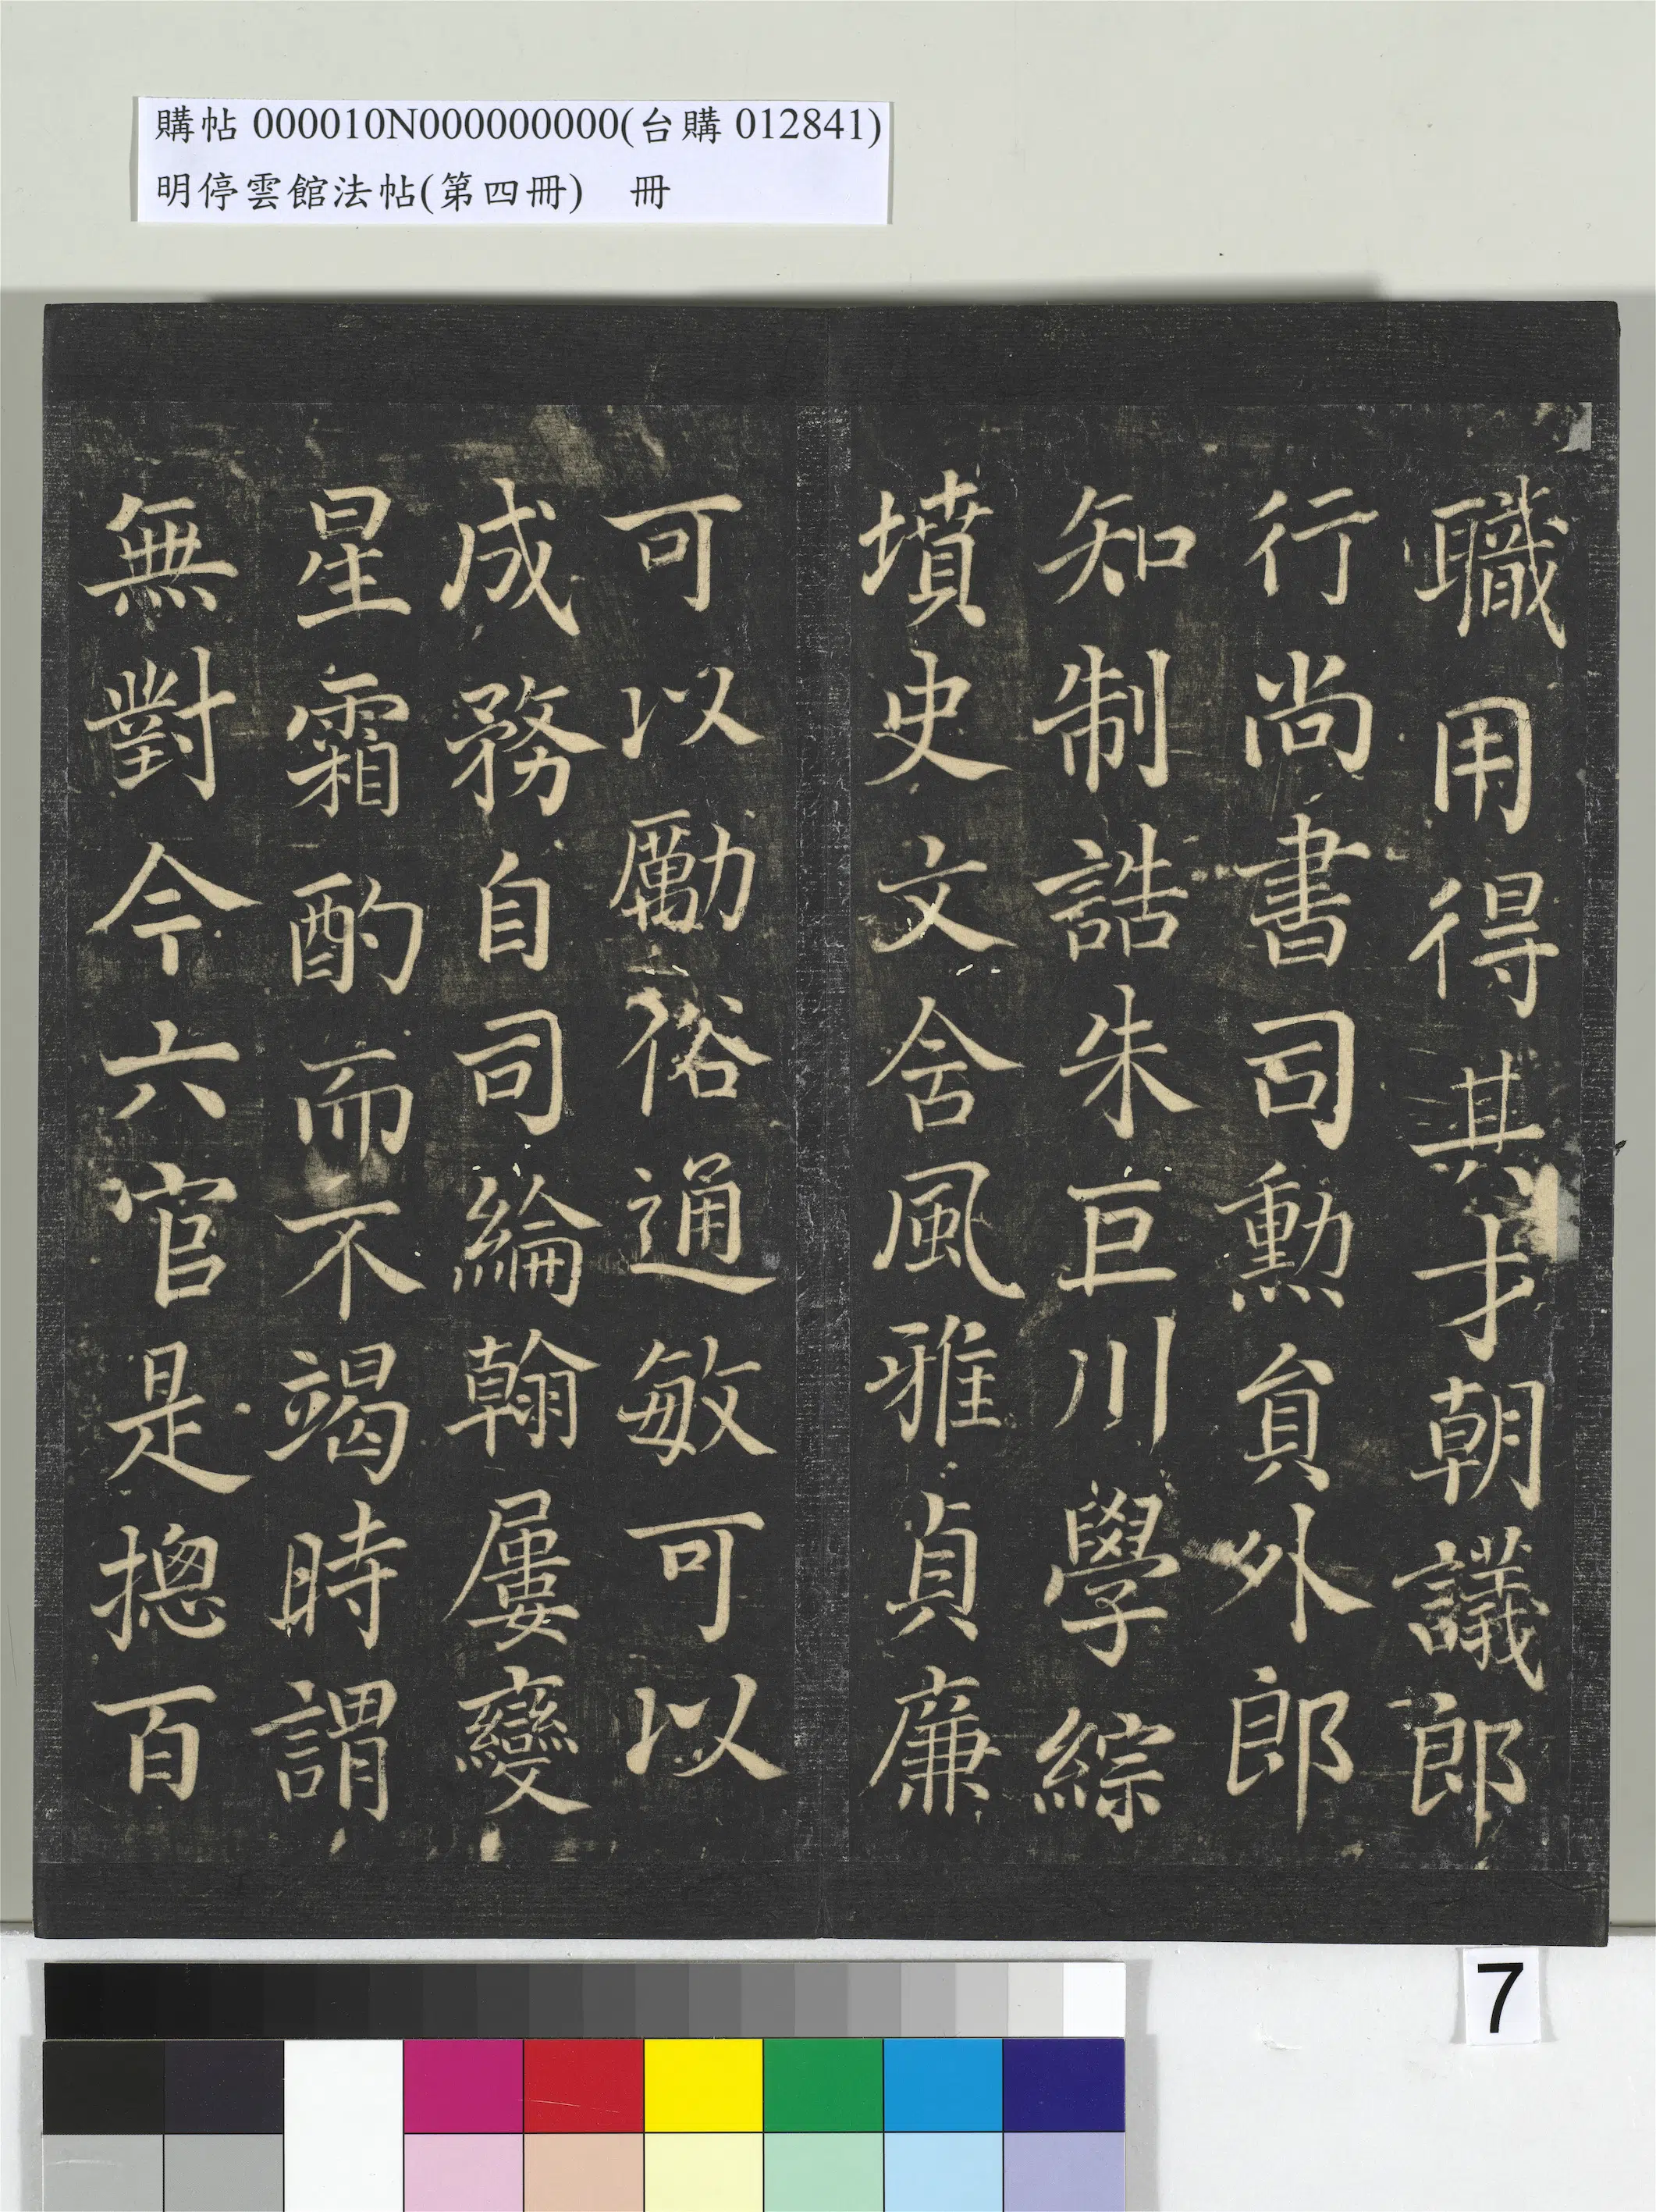 購帖 000010N000000000(台購 012841)
明停雲館法帖(第四冊) 冊
職用得其才朝議郎
行尚書司勲貟外郎
知制誥朱巨川學綜
墳史文含風雅貞廉
可以勵俗通敏可以
成務自司綸翰屢變
星霜酌而不竭時謂
無對今六官是摠百
7